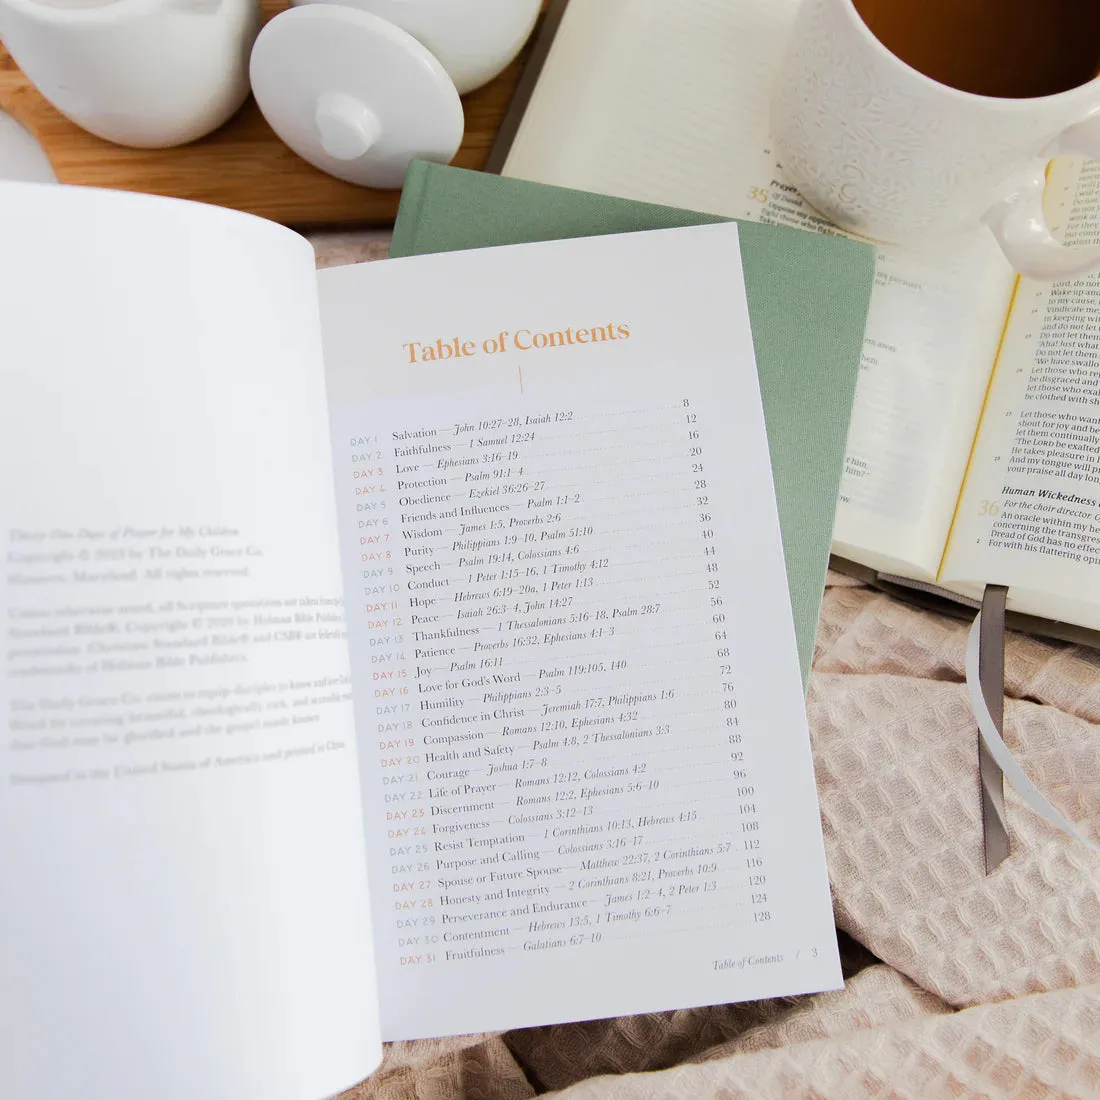 Thirty-One Days of Prayer for My Children
Copyright © 2023 by The Daily Grace Co.
Hanover, Maryland. All rights reserved.
Unless otherwise noted, all Scripture quotations are taken from
Standard Bible®, Copyright © 2020 by Holman Bible
permission. Christian Standard Bible® and CSB® are
trademarks of Holman Bible Publishers.
The Daily Grace Co. exists to equip disciples to know and
God by creating beautiful, theologically rich, and
that God may be glorified and the gospel made known.
Designed in the United States of America and printed in China.
Table of Contents
DAY 1 Salvation — John 10:27–28, Isaiah 12:2 8
DAY 2 Faithfulness — 1 Samuel 12:24 12
DAY 3 Love — Ephesians 3:16–19 16
DAY 4 Protection — Psalm 91:1–4 20
DAY 5 Obedience — Ezekiel 36:26–27 24
DAY 6 Friends and Influences — Psalm 1:1–2 28
DAY 7 Wisdom — James 1:5, Proverbs 2:6 32
DAY 8 Purity — Philippians 1:9–10, Psalm 51:10 36
DAY 9 Speech — Psalm 19:14, Colossians 4:6 40
DAY 10 Conduct — 1 Peter 1:15–16, 1 Timothy 4:12 44
DAY 11 Hope — Hebrews 6:19–20a, 1 Peter 1:13 48
DAY 12 Peace — Isaiah 26:3–4, John 14:27 52
DAY 13 Thankfulness — 1 Thessalonians 5:16–18, Psalm 28:7 56
DAY 14 Patience — Proverbs 16:32, Ephesians 4:1–3 60
DAY 15 Joy — Psalm 16:11 64
DAY 16 Love for God's Word — Psalm 119:105, 140 68
DAY 17 Humility — Philippians 2:3–5 72
DAY 18 Confidence in Christ — Jeremiah 17:7, Philippians 1:6 76
DAY 19 Compassion — Romans 12:10, Ephesians 4:32 80
DAY 20 Health and Safety — Psalm 4:8, 2 Thessalonians 3:3 84
DAY 21 Courage — Joshua 1:7–8 88
DAY 22 Life of Prayer — Romans 12:12, Colossians 4:2 92
DAY 23 Discernment — Romans 12:2, Ephesians 5:6–10 96
DAY 24 Forgiveness — Colossians 3:12–13 100
DAY 25 Resist Temptation — 1 Corinthians 10:13, Hebrews 4:15 104
DAY 26 Purpose and Calling — Colossians 3:16–17 108
DAY 27 Spouse or Future Spouse — Matthew 22:37, 2 Corinthians 5:7 112
DAY 28 Honesty and Integrity — 2 Corinthians 8:21, Proverbs 10:9 116
DAY 29 Perseverance and Endurance — James 1:2–4, 2 Peter 1:3 120
DAY 30 Contentment — Hebrews 13:5, 1 Timothy 6:6–7 124
DAY 31 Fruitfulness — Galatians 6:7–10 128
Table of Contents / 3
35
of David.
Oppose my
fight those who fight
away.
him.
him?"
Lord, do not
Wake up and
to my cause,
24 Vindicate me,
in keeping wi
and do not let
25 Do not let them
"Aha! Just what
Do not let them
"We have swallo
26 Let those who re
be disgraced and
let those who exal
be clothed with sh
27 Let those who want
shout for joy and be
let them continually
"The LORD be exalted
He takes pleasure in h
28 And my tongue will p
your praise all day lon
Human Wickedness
36 For the choir director. O
An oracle within my he
concerning the transgres
Dread of God has no effec
2 For with his flattering opi